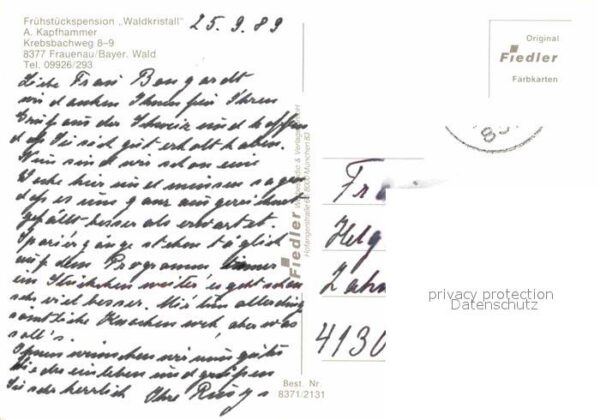 Frühstückspension „Waldkristall"
A. Kapfhammer
Krebsbachweg 8–9
8377 Frauenau/Bayer. Wald
Tel. 09926/293
25.9.89
Liebe Frau Bongardt
wir danken Ihnen für Ihren
Gruß aus der Schweiz und hoffen
daß Sie sich gut erholt haben.
Nun sind wir schon eine
Woche hier und müssen sagen
daß es uns ganz ausgezeichnet
gefällt besser als erwartet.
Spaziergänge stehen täglich
auf dem Programm immer
ein Stückchen weiter es geht schon
sehr viel besser. Mir tun allerdings
sämtliche Knochen weh, aber was
soll's.
Ihnen wünschen wir nun gutes
Wiedereinleben und grüßen
Sie sehr herzlich Ihre
Fiedler
Verlag
8000 München 83
Best. Nr.
8371/2131
Original
Fiedler
Farbkarten
Fra
Helg
Zahn
4130
privacy protection
Datenschutz